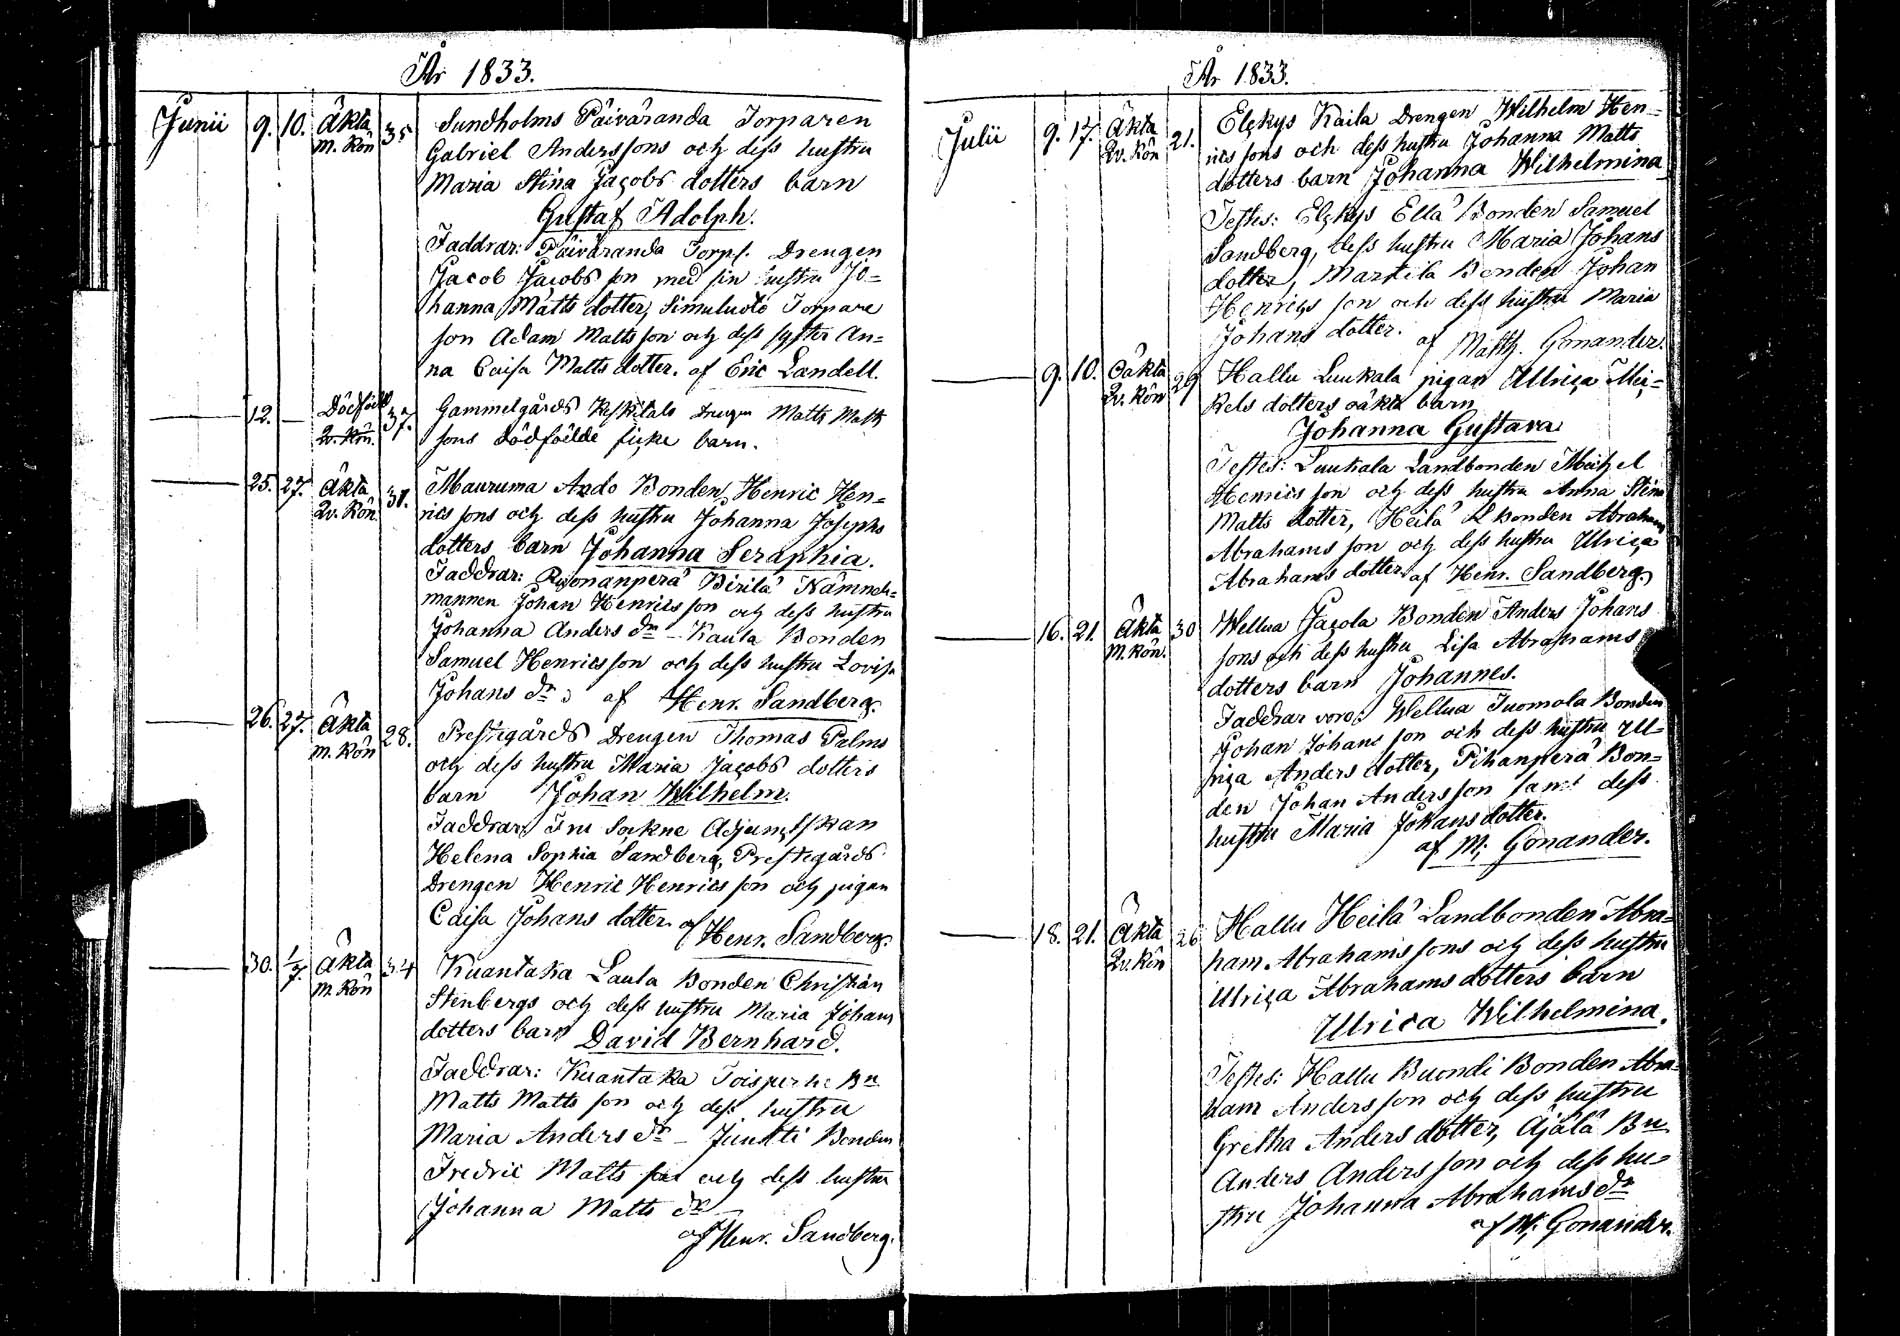 År 1833.
Junii 9. 10. Äkta m. Kön 35 Sundholms Päiväranda Torparen
Gabriel Anderssons och dess hustru
Maria Stina Jacobs dotters barn
Gustaf Adolph.
Faddrar: Päiväranda Torps. Drengen
Jacob Jacobs son med sin hustru Jo=
hanna Matts dotter, Simuluoto Torpare
son Adam Matts son och dess syster An=
na Caisa Matts dotter. af Eric Landell.
12. — Dödfödd Qv. Kön. 37. Gammelgårds Drengen Matts Matts
sons dödfödde ficke barn.
25. 27. Äkta Qv. Kön. 31. Mauruma Ando Bonden Henric Hen=
rics sons och dess hustru Johanna Josephs
dotters barn Johanna Seraphia.
Faddrar: Birilä Nämnde=
mannen Johan Henrics son och dess hustru
Johanna Anders dr — Kaula Bonden
Samuel Henrics son och dess hustru Lovisa
Johans dr af Henr. Sandberg.
26. 27. Äkta m. Kön 28. Prestegårds Drengen Thomas Palms
och dess hustru Maria Jacobs dotters
barn Johan Wilhelm.
Faddrar: Fru Sockne Adjunctskan
Helena Sophia Sandberg, Prestegårds
Drengen Henric Henrics son och pigan
Caisa Johans dotter. af Henr. Sandberg.
30. 1/7. Äkta m. Kön 34 Kuantaka Laula Bonden Christian
Stenbergs och dess hustru Maria Johans
dotters barn David Bernhard.
Faddrar: Kuantaka Bn
Matts Matts son och dess hustru
Maria Anders dr — Juntti Bonden
Fredric Matts son och dess hustru
Johanna Matts dr
af Henr. Sandberg.
År 1833.
Julii 9. 17. Äkta Qv. Kön 21. Elckys Kaila Drengen Wilhelm Hen=
rics sons och dess hustru Johanna Matts
dotters barn Johanna Wilhelmina
Testes: Elckys Ella Bonden Samuel
Sandberg, dess hustru Maria Johans
dotter, Markila Bonden Johan
Henrics son och dess hustru Maria
Johans dotter. af Matth. Gonander.
9. 10. Oäkta Qv. Kön 29 Hallu Luukala pigan Ulrica Mic=
kels dotters oäkta barn
Johanna Gustava
Testes: Luukala Landbonden Michel
Henrics son och dess hustru Anna Stina
Matts dotter, Heilä Lbonden Abraham
Abrahams son och dess hustru Ulrica
Abrahams dotter af Henr. Sandberg.
16. 21. Äkta m. Kön. 30 Wellua Jacola Bonden Anders Johans
sons och dess hustru Lisa Abrahams
dotters barn Johannes.
Faddrar voro: Wellua Tuomola Bonden
Johan Johans son och dess hustru Ul=
rica Anders dotter, Pihanperä Bon=
den Johan Anders son samt dess
hustru Maria Johans dotter.
af M: Gonander.
18. 21. Äkta Qv. Kön 26 Hallu Heilä Landbonden Abra=
ham Abrahams sons och dess hustru
Ulrica Abrahams dotters barn
Ulrica Wilhelmina.
Testes: Hallu Buondi Bonden Abra=
ham Anders son och dess hustru
Gretha Anders dotter, Äjälä Bn
Anders Anders son och dess hu=
stru Johanna Abrahams dr
af M: Gonander.